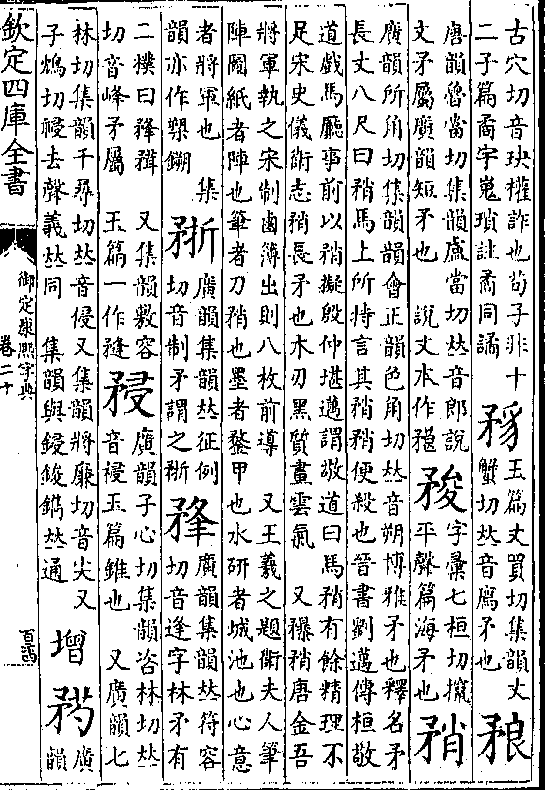 古穴切音玦權詐也荀子非十
二子篇矞宇嵬瑣註矞同譎
玉篇丈買切集韻丈
蟹切𠀤音廌矛也
唐韻魯當切集韻盧當切𠀤音郎說
文矛屬廣韻短矛也　說文本作
字彙七桓切攛
平聲篇海矛也
矟
廣韻所角切集韻韻會正韻色角切𠀤音朔博雅矛也釋名矛
長丈八尺曰矟馬上所持言其矟矟便殺也晉書劉邁傳桓敬
道戲馬廳事前以矟擬殷仲堪邁謂敬道曰馬矟有餘精理不
足宋史儀衛志矟長矛也木刃黑質畫雲氣　又矟唐金吾
將軍執之宋制鹵簿出則八枚前導　又王羲之題衛夫人筆
陣圖紙者陣也筆者刀矟也墨者鍪甲也水硏者城池也心意
者將軍也　集
韻亦作槊鎙
廣韻集韻𠀤征例
切音制矛謂之
廣韻集韻𠀤符容
切音逢字林矛有
二橫曰　又集韻敷容
切音峰矛屬　玉篇一作
廣韻子心切集韻咨林切𠀤
音祲玉篇錐也　又廣韻七
林切集韻千尋切𠀤音侵又集韻將廉切音尖又
子鴆切祲去聲義𠀤同　集韻與鋟鋑鐫𠀤通
增
廣
韻
欽定四庫全書
御定康熙字典
卷二十